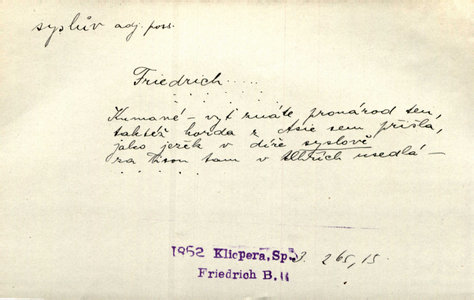 syslův adj. poss.
Friedrich.....
Kumané – vyť znáte pronárod ten,
taktéž horda z Asie sem přišla,
jako ježek v díře syslově
za Tisou tam v Uhřích usedlá –
1862 Klicpera, Sp. 3. 265, 15.
Friedrich B. II